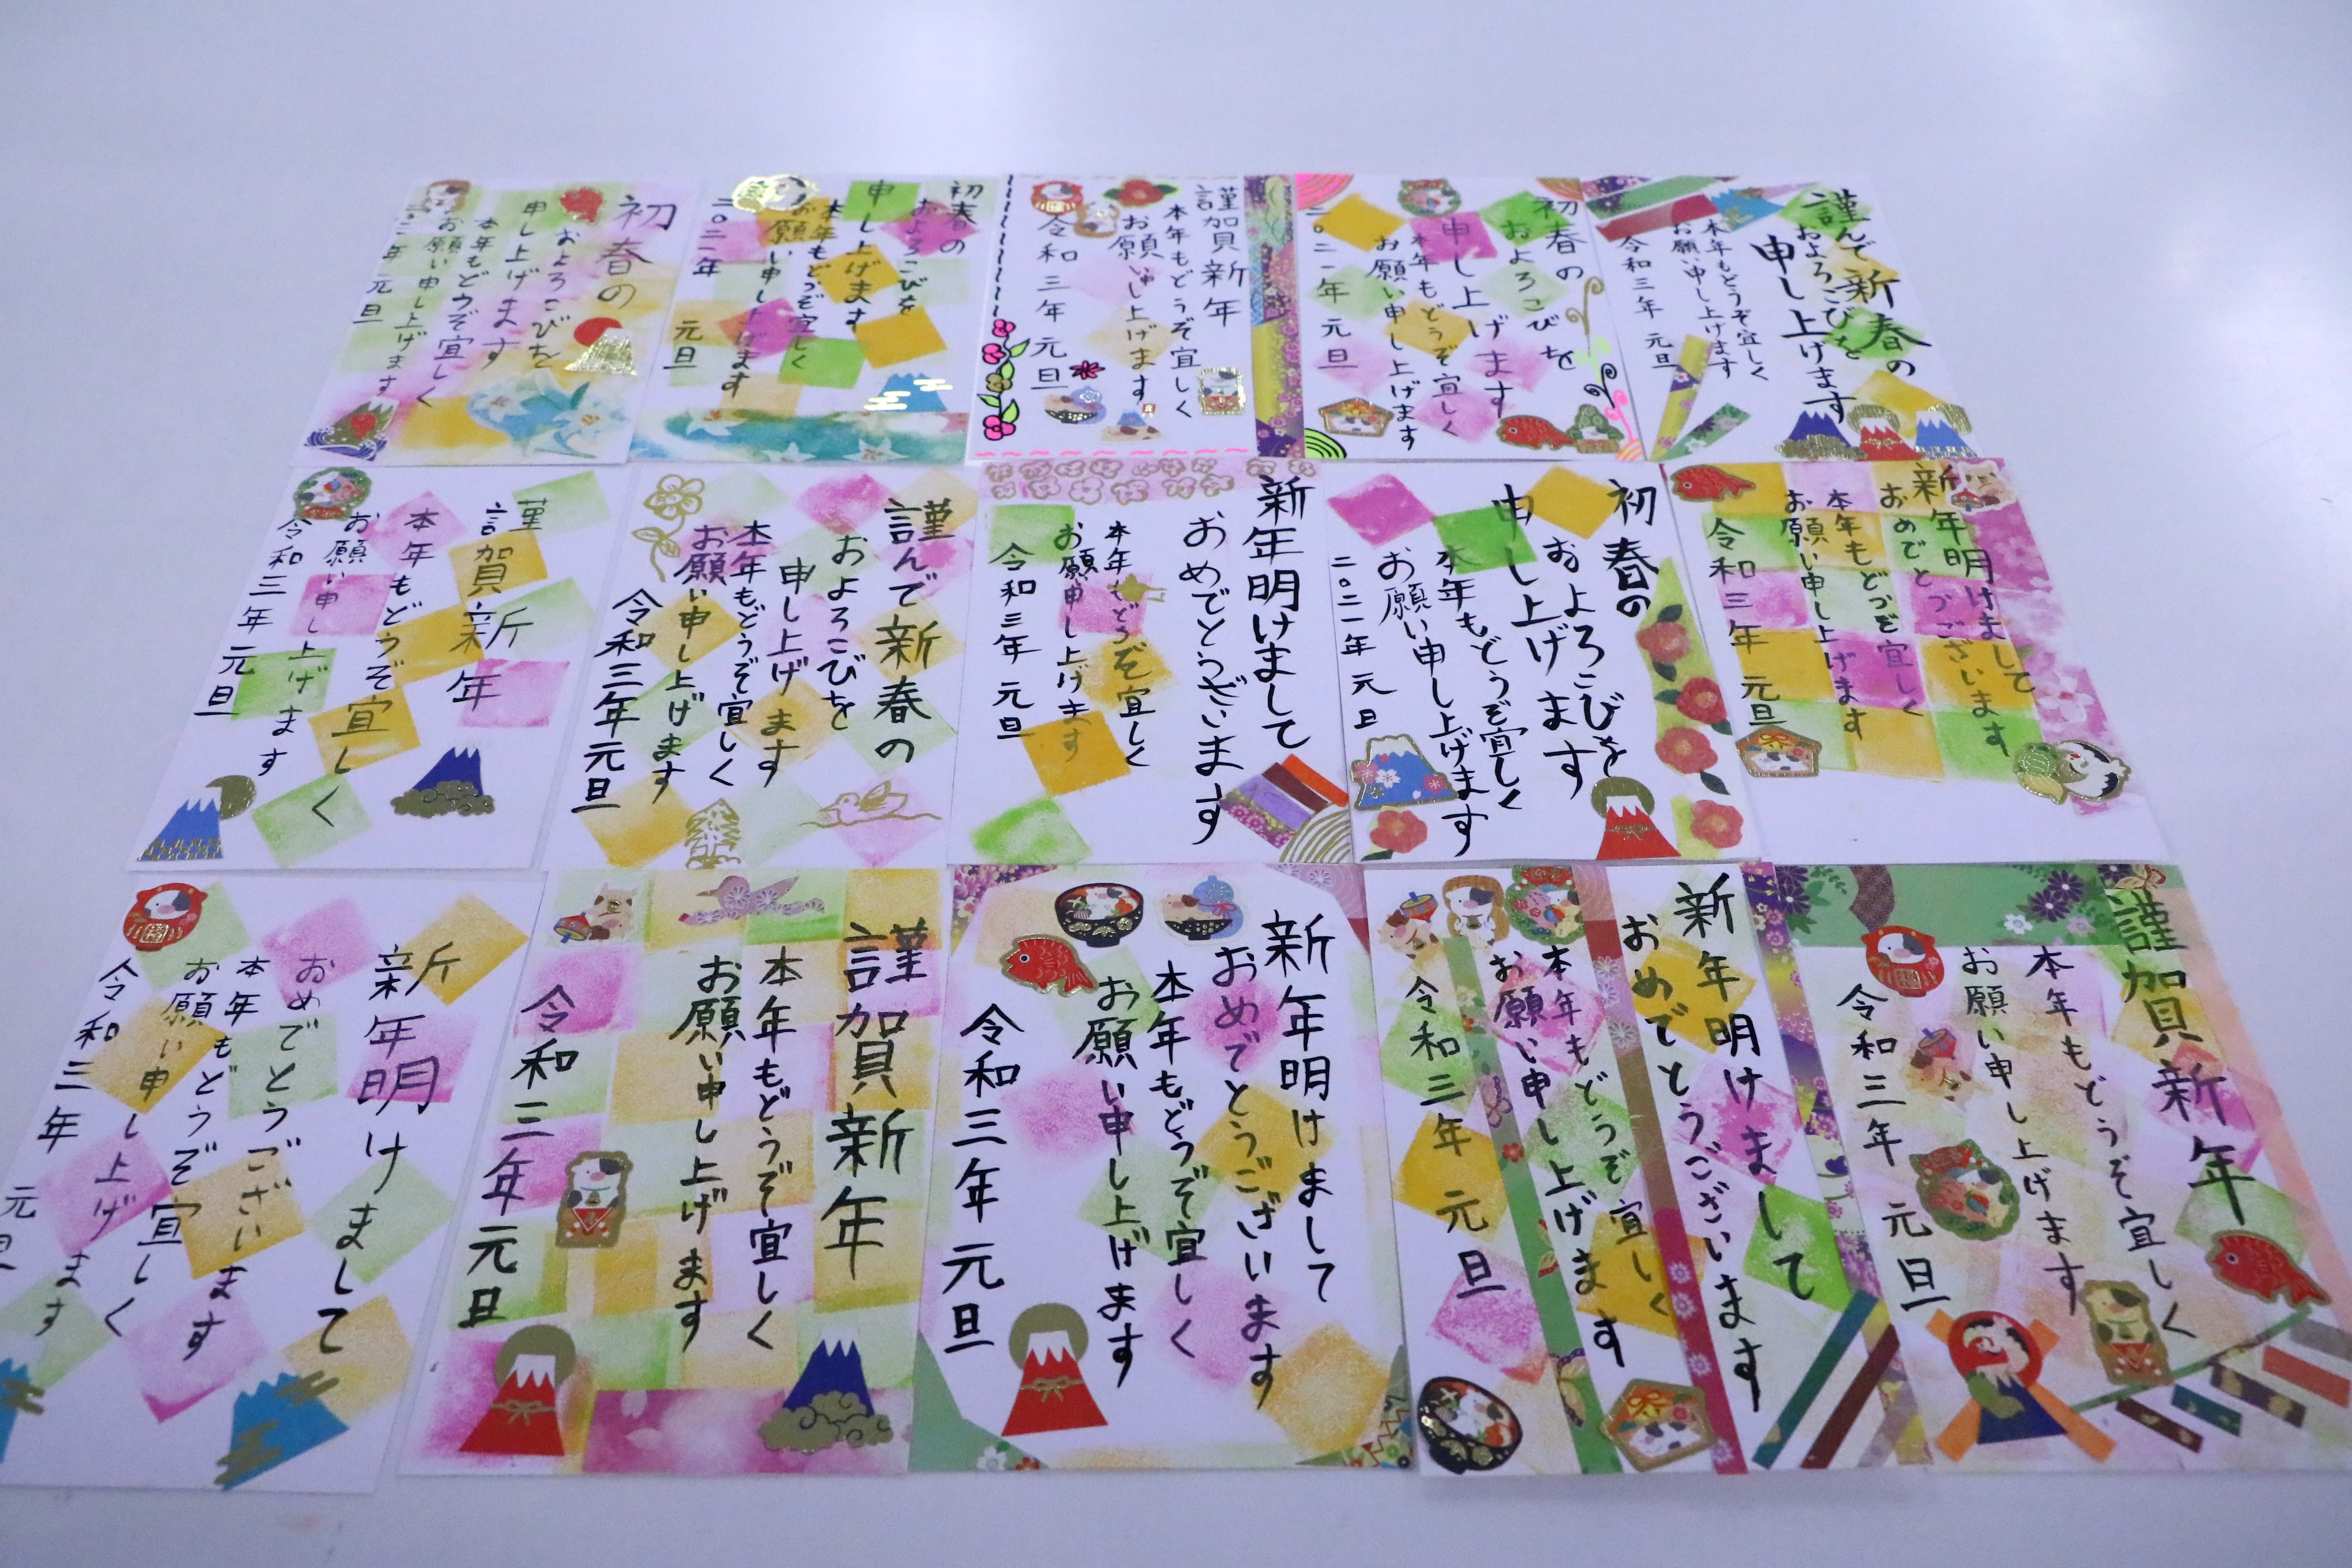 初春の
およろこびを
申し上げます
本年もどうぞ宜しく
お願い申し上げます
年 元旦
初春の
およろこびを
申し上げます
本年もどうぞ宜しく
お願い申し上げます
二〇二一年 元旦
謹賀新年
本年もどうぞ宜しく
お願い申し上げます
令和三年 元旦
初春の
およろこびを
申し上げます
本年もどうぞ宜しく
お願い申し上げます
二〇二一年 元旦
謹んで新春の
およろこびを
申し上げます
本年もどうぞ宜しく
お願い申し上げます
令和三年 元旦
謹賀新年
本年もどうぞ宜しく
お願い申し上げます
令和三年 元旦
謹んで新春の
およろこびを
申し上げます
本年もどうぞ宜しく
お願い申し上げます
令和三年元旦
新年明けまして
おめでとうございます
本年もどうぞ宜しく
お願い申し上げます
令和三年 元旦
初春の
およろこびを
申し上げます
本年もどうぞ宜しく
お願い申し上げます
二〇二一年 元旦
新年明けまして
おめでとうございます
本年もどうぞ宜しく
お願い申し上げます
令和三年 元旦
新年明けまして
おめでとうございます
本年もどうぞ宜しく
お願い申し上げます
令和三年 元旦
謹賀新年
本年もどうぞ宜しく
お願い申し上げます
令和三年元旦
新年明けまして
おめでとうございます
本年もどうぞ宜しく
お願い申し上げます
令和三年 元旦
新年明けまして
おめでとうございます
本年もどうぞ宜しく
お願い申し上げます
令和三年 元旦
謹賀新年
本年もどうぞ宜しく
お願い申し上げます
令和三年 元旦